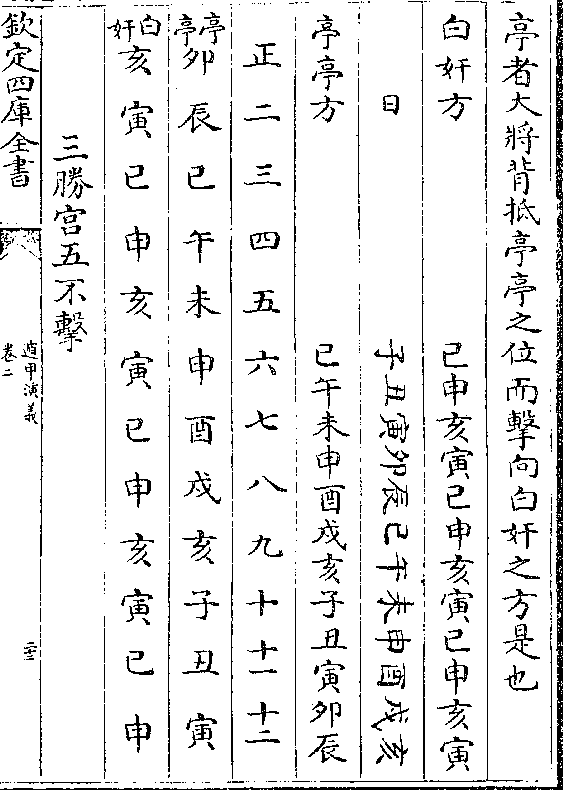 亭者大將背抵亭亭之位而擊向白奸之方是也
白奸方 巳申亥寅巳申亥寅巳申亥寅
日 子丑寅卯辰巳午未申酉戌亥
亭亭方 巳午未申酉戌亥子丑寅卯辰
正二三四五六七八九十十一十二
亭亭卯辰巳午未申酉戌亥子丑寅
白奸亥寅巳申亥寅巳申亥寅巳申
三勝宫五不擊
欽定四庫全書
遁甲演義
卷二
二十三